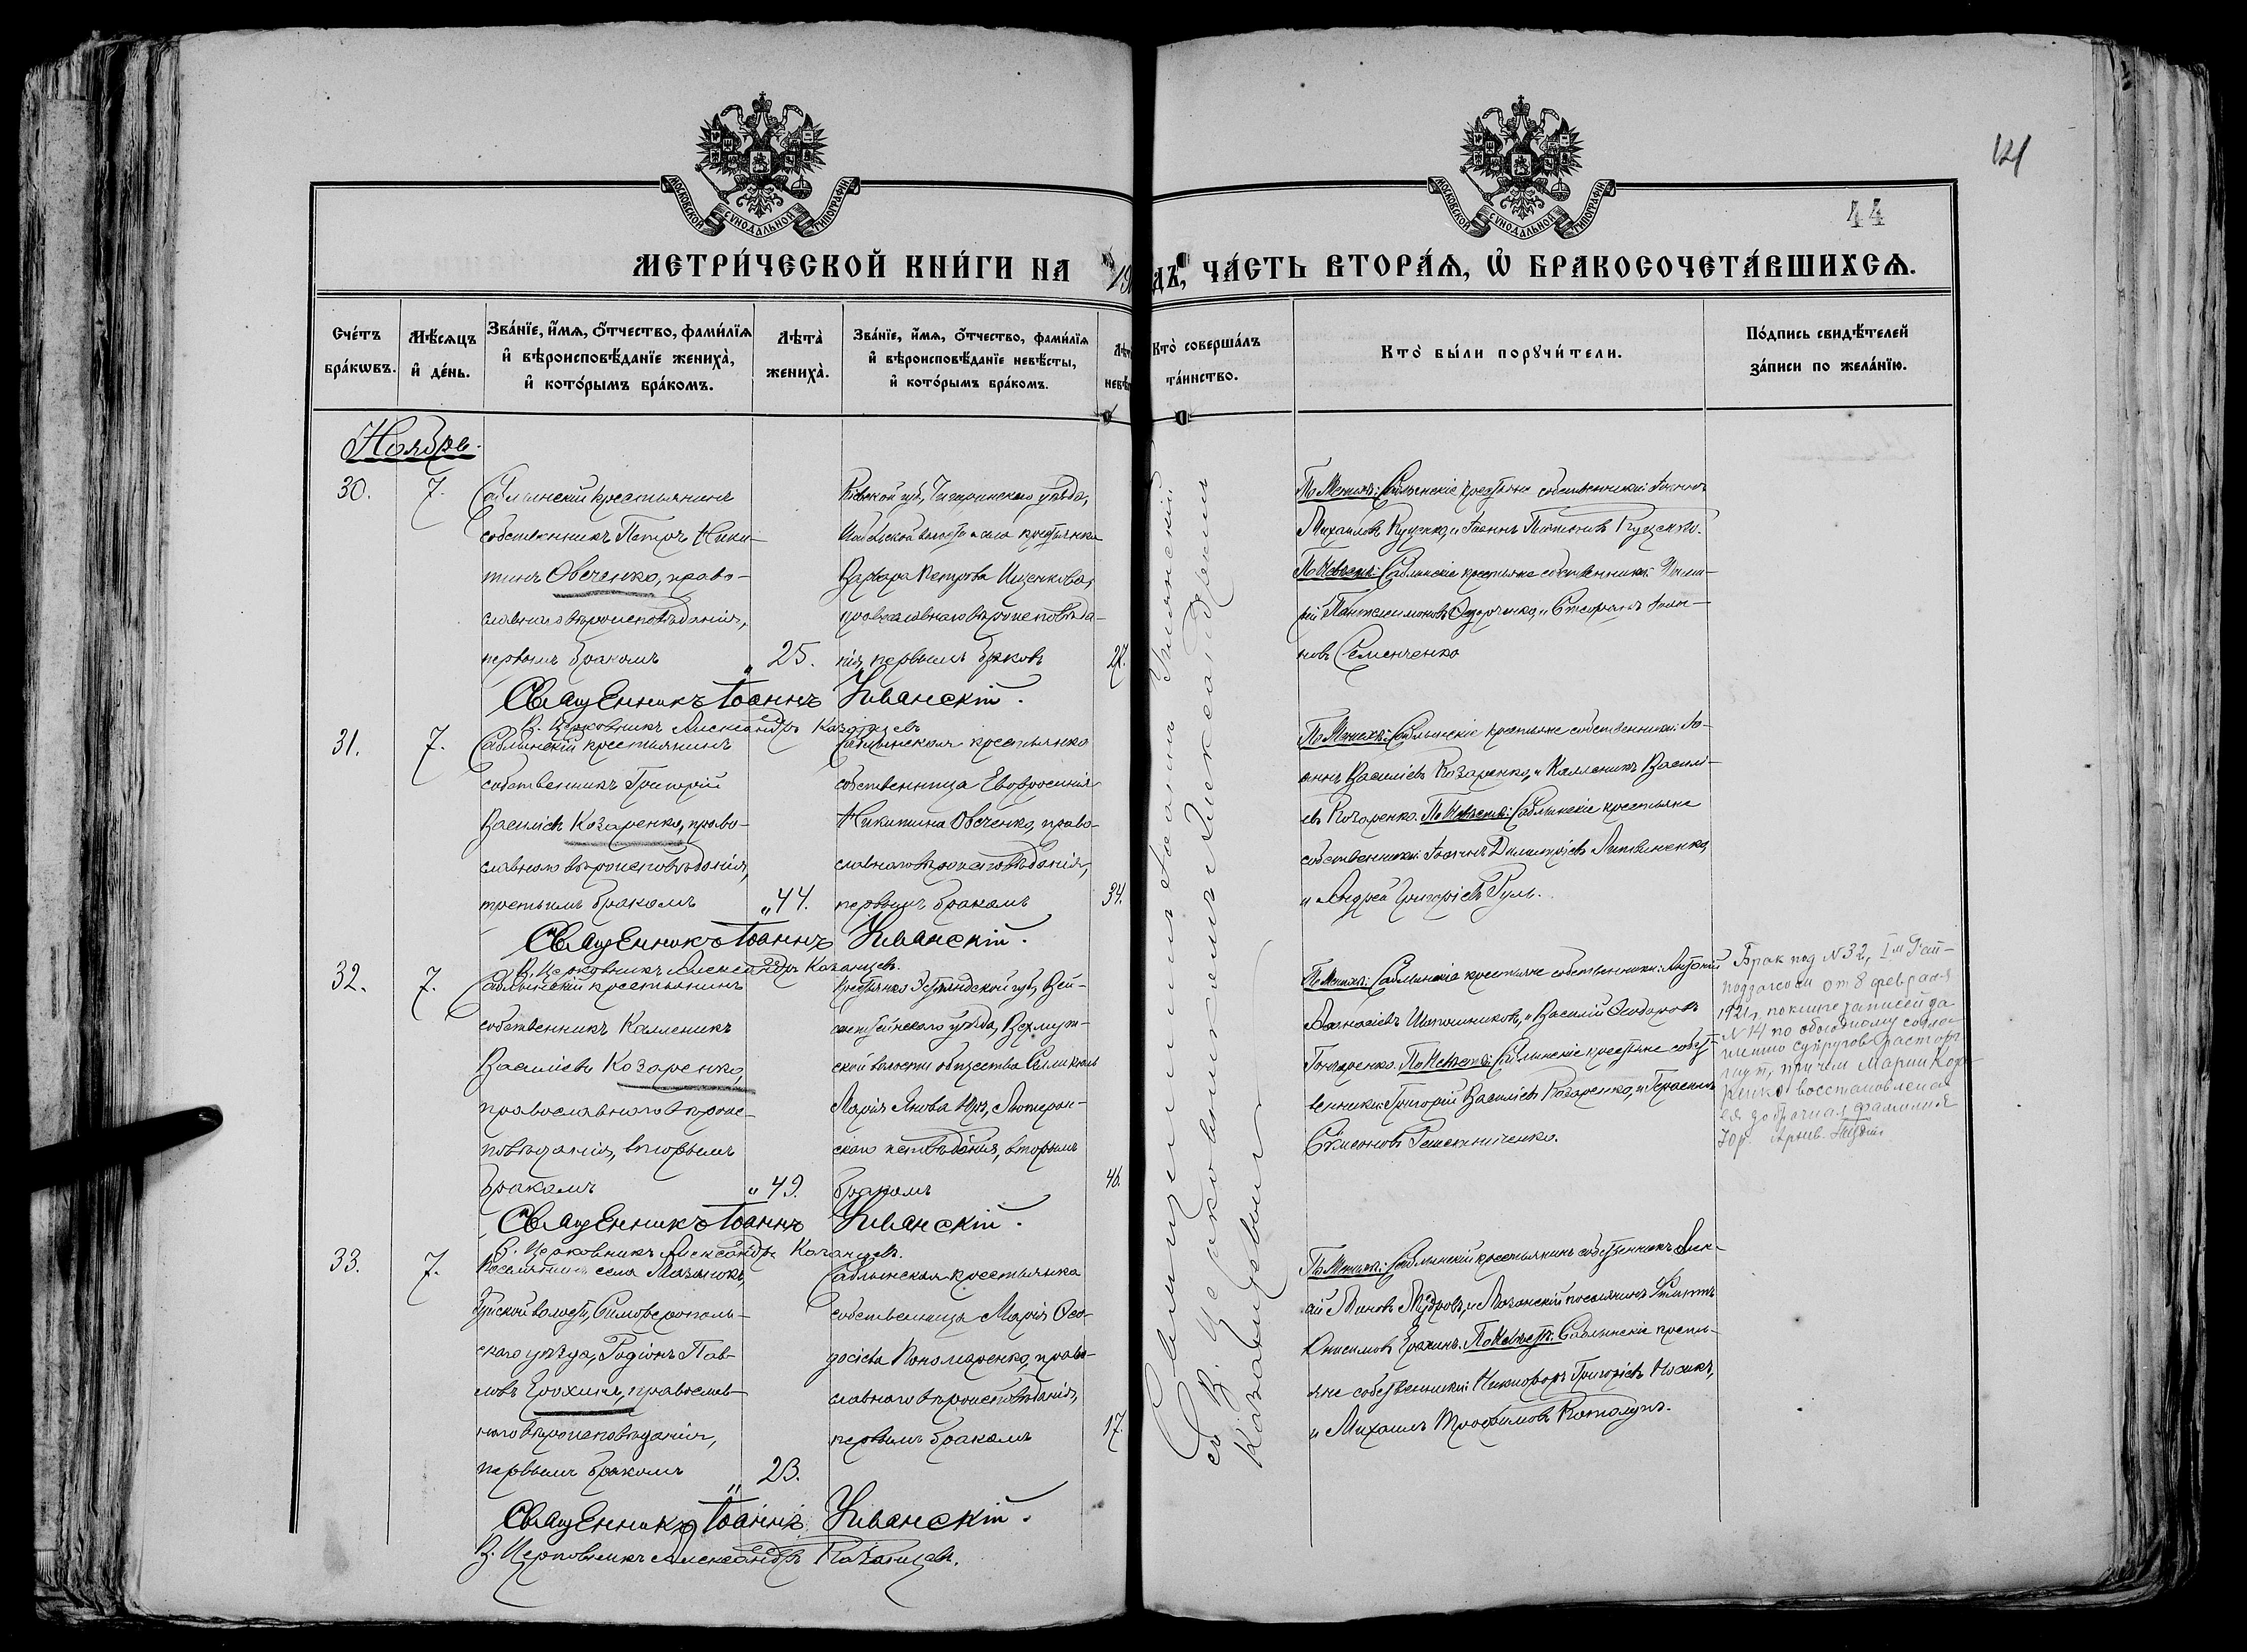 121
44
МОСКОВСКОЙ СѴНОДАЛЬНОЙ ТИПОГРАФІИ
МОСКОВСКОЙ СѴНОДАЛЬНОЙ ТИПОГРАФІИ
МЕТРИ́ЧЕСКОЙ КНИ́ГИ НА 19
ДЪ, ЧА́СТЬ ВТОРА́Ѧ, Ѽ БРАКОСОЧЕТА́ВШИХСѦ.
Сче́тъ бра́кѡвъ.
Мѣ́сѧцъ и҆ де́нь.
Зва́нїе, и҆́мѧ, ѻ҆́тчество, фами́лїѧ и҆ вѣроисповѣ́данїе жениха̀, и҆ кото́рымъ бра́комъ.
Лѣта̀ жениха̀.
Зва́нїе, и҆́мѧ, ѻ҆́тчество, фами́лїѧ и҆ вѣроисповѣ́данїе невѣ́сты, и҆ кото́рымъ бра́комъ.
Лѣт невѣ
Кто̀ соверша́лъ та́инство.
Кто̀ бы́ли порꙋчи́тели.
По́дпись свидѣ́телей за́писи по жела́нїю.
Ноябрь.
30.
7.
Саблынскій крестьянинъ
собственникъ Петръ Ники-
тинъ Овченко, право-
славнаго вѣроисповѣданія,
первымъ бракомъ
25.
Кіевской губ, Чигиринскаго уѣзда,
волости и села крестьянка
Варвара Петрова Ищенкова,
православнаго вѣроисповѣда-
нія, первымъ браковъ
27.
По Женихѣ: Саблынскіе крестьяне собственники: Іоаннъ
Михаиловъ Куценко, и Іоаннъ Куценко.
По Невѣстѣ: Саблынскіе крестьяне собственники:
Пантелеимоновъ и Стефанъ Іоан-
новъ Семенченко
Священникъ Іоаннъ Уманскій.
В. Церковникъ Александръ Казанцевъ
31.
7.
Саблынскій крестьянинъ
собственникъ Григорій
Василіевъ Козаренко, право-
славнаго вѣроисповѣданія,
третьимъ бракомъ
44.
Саблынская крестьянка
собственница Евфросинія
Никитина Овченко, право-
славнаго вѣроисповѣданія,
первымъ бракомъ
34.
По Женихѣ: Саблынскіе крестьяне собственники: Іо-
аннъ Василіевъ Козаренко, и Каллиникъ Василі-
евъ Козаренко. По Невѣстѣ: Саблынскіе крестьяне
собственники: Іоаннъ Димитріевъ Литвиненко,
и Андрей Григоріевъ Руль.
Священникъ Іоаннъ Уманскій.
В. Церковникъ Александръ Казанцевъ.
32.
7.
Саблынскій крестьянинъ
собственникъ Каллиникъ
Василіевъ Козаренко,
православнаго вѣроис-
повѣданія, вторымъ
бракомъ
49.
Крестьянка Эстляндской губ, Вей-
сенштейнскаго уѣзда,
ской волости общества
Марія Янова Лютеран-
скаго исповѣданія, вторымъ
бракомъ
46.
По Женихѣ: Саблынскіе крестьяне собственники: Антоній
Аѳанасіевъ и Василій Ѳеодоровъ
Гончаренко. По Невѣстѣ: Саблынскіе крестьяне собст-
венники: Григорій Василіевъ Козаренко, и Герасимъ
Симеоновъ Решетниченко.
Брак под N 32, Iм
от 8 февраля
1921 г, по книге записей за
N 14 по обоюдному согла-
шению супругов расторг-
нут, при чем Марии Коза-
ренко восстановлена
ея добрачная фамилия
Юр. Архив.
Священникъ Іоаннъ Уманскій.
В. Церковникъ Александръ Казанцевъ.
33.
7.
Поселянинъ села Мазанокъ,
Зуйской волости, Симферополь-
скаго уѣзда, Родіонъ Пав-
ловъ Ерохинъ, православ-
наго вѣроисповѣданія,
первымъ бракомъ
23.
Саблынская крестьянка
собственница Марія Ѳео-
досіева Пономаренко, право-
славнаго вѣроисповѣданія,
первымъ бракомъ
17.
По Женихѣ: Саблынскій крестьянинъ собственникъ Алек-
сій и Мазанскій поселянинъ Филиппъ
Онисимовъ Ерохинъ. По Невѣстѣ: Саблынскіе кресть-
яне собственники: Никифоръ Григоріевъ Носикъ,
и Михаилъ Трофимовъ
Священникъ Іоаннъ Уманскій.
В. Церковникъ Александръ Казанцевъ.
Священникъ Іоаннъ Уманскій
съ В. Церковникомъ Александромъ
Казанцевымъ